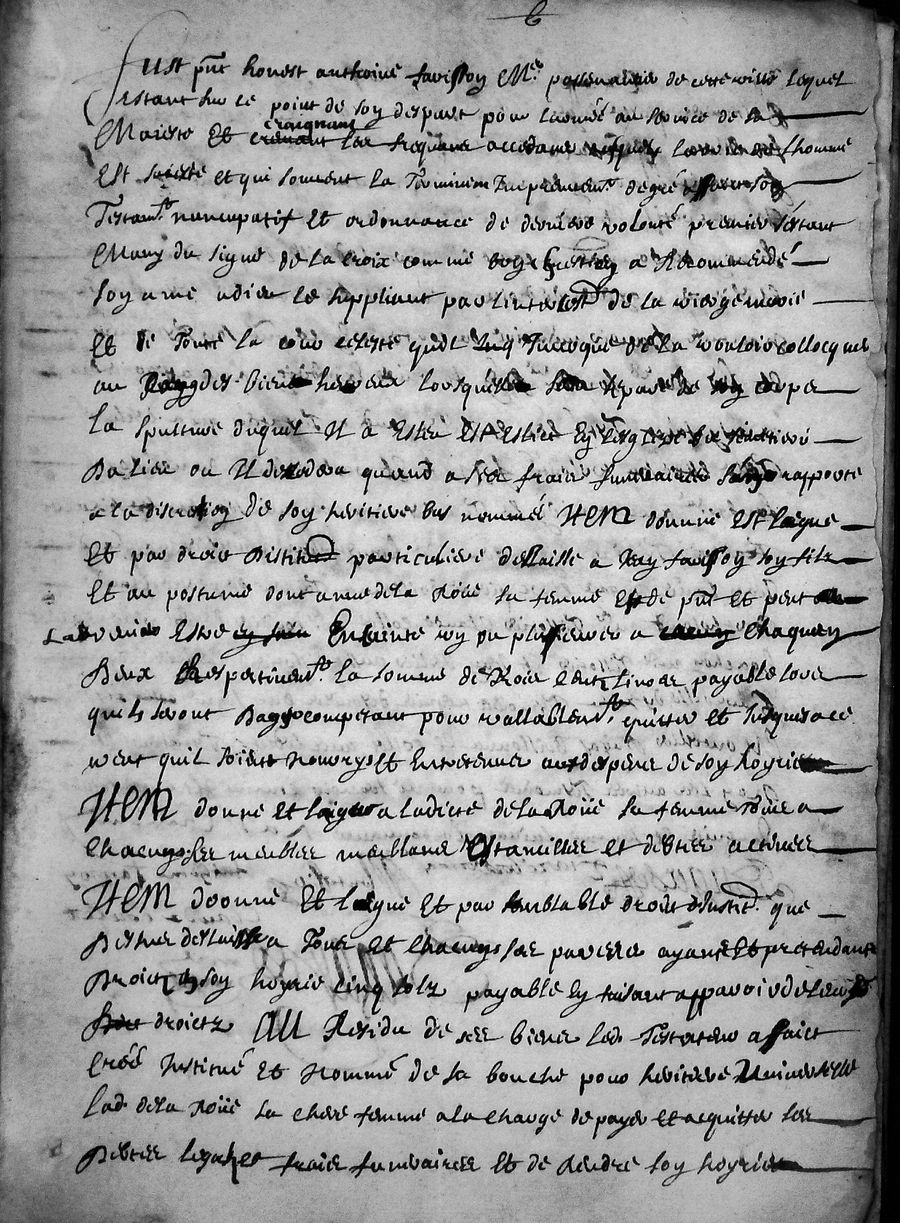 6
Fust pnt honest anthoine favisson Me passementier de cette ville lequel
estant sur le point de soy despartir pour larmée au service de sa
Majesté Et craignant les frequans accidans ausquels la vie de lhomme
Est subjecte et qui souvent la Terminent Inopinement de gré a faict son
Testamt nuncupatif Et ordonnance de derniere volonté premier sestant
Muny du signe de la croix comme bon chrestien a Recommendé
son ame a dieu le suppliant par lintercession de la vierge marie
Et de Toutte la cour celeste quil la vouloir collocquer
au Rang des bien heureux lorsquelle sera separée de son corps
la sepulture duquel Il a Esleu Est Eslict En leglise
ou Il decedera quand a ses fraiz funeraires sen rapporte
a la discretion de son heritiere bas nommée Item donne Et legue
Et par droict dinstitution particuliere delaisse a favisson son filz
Et au postume dont anne de la Roüe sa femme Est de pnt Et peut
a ladvenir Estre Enceinte soy ou plusieurs a chacun
deux Respectivemt la somme de Trois cent livres payable lors
quils seront daage competant pour vallablemt quitter et Jusques a ce
veut quils soient nourrys Et Entretenus aux despens de son hoyrie
Item donne et legue a ladicte de la Roüe sa femme Tous a
chacungs ses meubles meublans Ustancilles et debtes actives
Item donne Et legue Et par semblable droict dinstit. que
dessus delaisse a Tous et chacungs ses parens ayants Et pretendants
Droict En son hoyrie cinq solz payable En faisant apparoir de leurs
droictz AU Residu de ses biens led. Testateur a faict
créé Institué Et nommé de sa bouche pour heritiere Universelle
lad. de la Roüe sa chere femme a la charge de payer et acquitter ses
debtes legatz et fraiz funeraires Et de Rendre son hoyrie